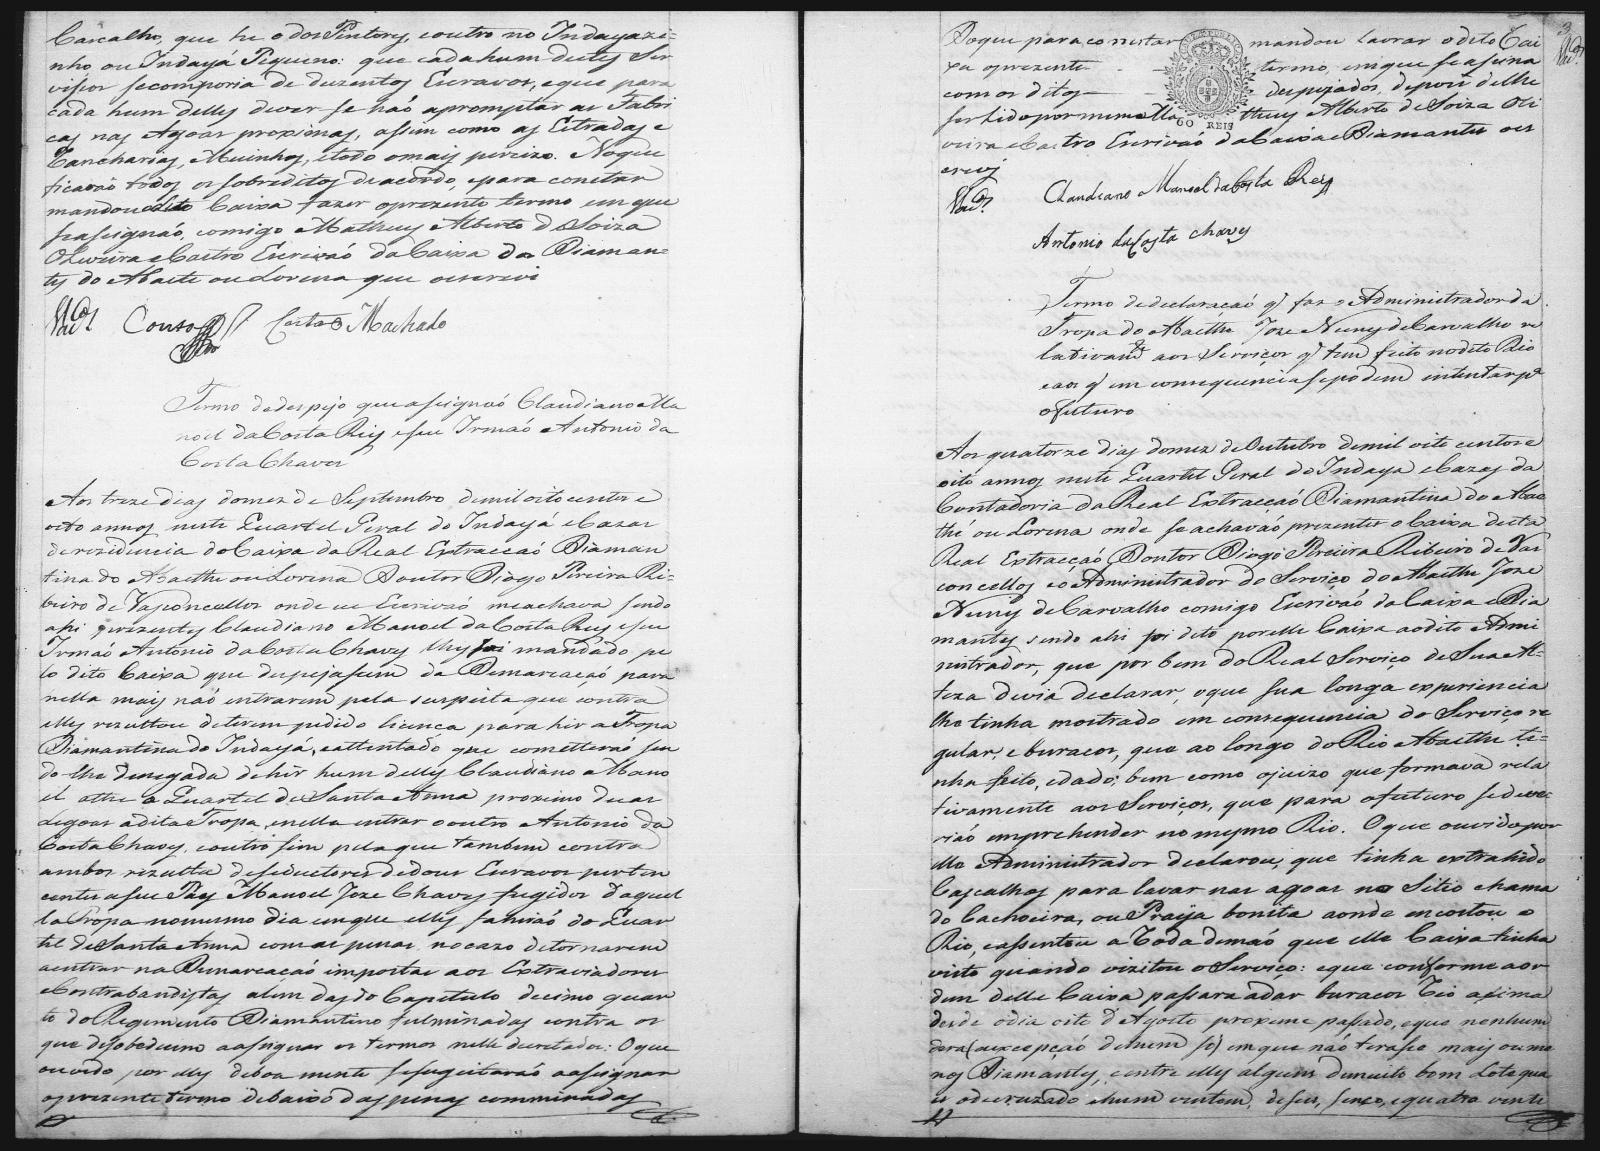 Cascalho, que he o dos Pintores, e outro no Indayazi=
nho ou Indayá Piqueno: que cada hum destes Ser
vissos se comporia de duzentos Escravos, e que para
cada hum delles dever se hão apromptar as Fabri
cas nas Agoas proximas, assim como as Estradas e
Rancharias, Muinhos, e todo o mais precizo. No que
ficarão todos os sobreditos de acordo, e para constar
mandou o dito Caixa fazer o prezente termo em que
se assignão, comigo Matheus Alberto de Soiza
Oliveira e Castro Escrivão da Caixa dos Diaman=
tes do Abaete ou Lorena que o escrevi
Vasc.os Couto Costa Machado
Termo de despejo que assignão Claudiano Ma
noel da Costa Reis e seu Irmão Antonio da
Costa Chaves
Aos treze dias do mez de Septembro de mil oito centos e
oito annos neste Quartel Geral do Indayá e Cazas
de rezidencia do Caixa da Real Extracção Diaman
tina do Abaethe ou Lorena Doutor Diogo Pereira Ri=
beiro de Vasconcellos onde eu Escrivão me achava sendo
ahi prezentes Claudiano Manoel da Costa Reis e seu
Irmão Antonio da Costa Chaves lhes foi mandado pe
lo dito Caixa que despejassem da Demarcação para
nella mais não entrarem pela suspeita que contra
elles rezultou de terem pedido licença para hir a Tropa
Diamantina do Indayá, e attentado que cometterão sen
do-lhe denegada de hir hum delles Claudiano Mano
el athe o Quartel de Santa Anna proximo duas
Legoas a dita Tropa, e nella entrar o outro Antonio da
Costa Chaves, e outro sim pela que tambem contra
ambos rezulta de seductores de dous Escravos perten
centes a seu Pay Manoel Joze Chaves fugidos daquel
la Tropa no mesmo dia em que elles sahirão do Quar
tel de Santa Anna com as penas no cazo de tornarem
a entrar na Demarcação impostas aos Extraviadores
e Contrabandistas alem das do Capitulo decimo quar
to do Regimento Diamantino fulminadas contra os
que disobedecem a assignar os termos nelle decretados: O que
ouvido por elles de boa mente se sugeitarão a assignar
o prezente termo debaixo das penas comminadas
Do que para constar mandou lavrar o dito Cai
xa o prezente termo, em que se assina
com os ditos despejados, depois delhe
ser lido por mim Matheus Alberto de Soiza Oli
veira e Castro Escrivão da Caixa e Diamantes o es
crevj
Vasc.os Claudiano Manoel da Costa Reis
Antonio da Costa Chaves
60 REIS
Termo de declaração q̃ faz o Administrador da
Tropa do Abaethe Joze Nunes de Carvalho re
lativam.te aos Serviços q̃ tem feito no dito Rio
e aos q̃ em consequencia se podem intentar p.a
o futuro
Aos quatorze dias do mez de Outubro de mil oito centos e
oito annos neste Quartel Geral do Indaya e Cazas da
Contadoria da Real Extracção Diamantina do Abae
thé ou Lorena onde se achavão prezentes o Caixa desta
Real Extracção Doutor Diogo Pereira Ribeiro de Vas
concellos e o Administrador do Serviço do Abaethe Joze
Nunes de Carvalho comigo Escrivão da Caixa e Dia
mantes sendo ahi foi dito por elle Caixa ao dito Admi
nistrador, que por bem do Real Serviço de Sua Al=
teza devia declarar, o que sua longa experiencia
lhe tinha mostrado em consequencia do Serviço re
gular, e buracos, que ao longo do Rio Abaethe ti=
nha feito, e dado; bem como o juizo que formava rela
tivamente aos Serviços, que para o futuro se deve=
rião emprehender no mesmo Rio. O que ouvido por
elle Administrador declarou, que tinha extrahido
Cascalhos para lavar nas agoas no Sitio chama
do Cachoeira, ou Praya bonita aonde encostou o
Rio, e assentou a Roda de mão que elle Caixa tinha
visto quando vizitou o Serviço: e que conforme a or
dem delle Caixa passara a dar buracos Rio assima
desde o dia oito de Agosto proximo passado, e que nenhum
dera (a excepção de hum só) em que não tirasse mais ou me
nos Diamantes, e entre elles alguns de muito bom Lote qua
es o de cruzado e hum vintem, de seis, senço, e quatro vinte